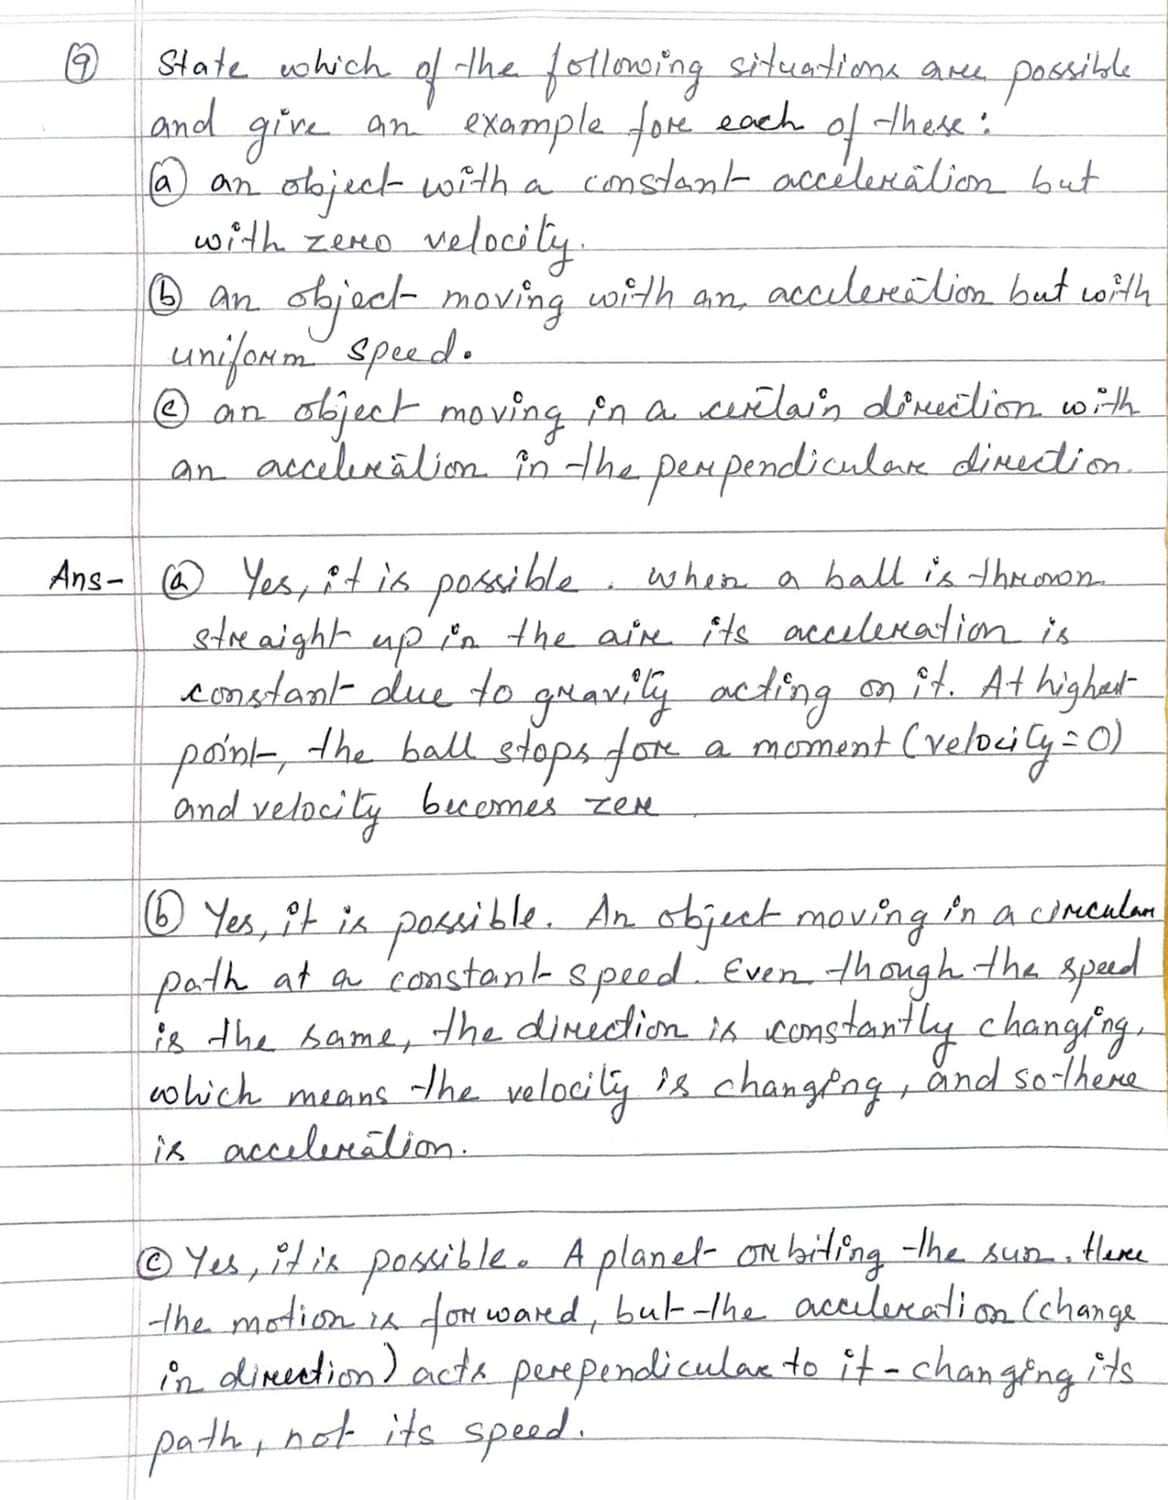 9 State which of the following situations are possible
and give an example for each of these:
a an object with a constant acceleration but
with zero velocity.
b an object moving with an acceleration but with
uniform speed.
c an object moving in a certain direction with
an acceleration in the perpendicular direction.
Ans- a Yes, it is possible. When a ball is thrown
straight up in the air its acceleration is
constant due to gravity acting on it. At highest
point, the ball stops for a moment (velocity=0)
and velocity becomes zer
b Yes, it is possible. An object moving in a circular
path at a constant speed. Even though the speed
is the same, the direction is constantly changing,
which means the velocity is changing, and so there
is acceleration.
c Yes, it is possible. A planet orbiting the sun. Here
the motion is forward, but the acceleration (change
in direction) acts perpendicular to it - changing its
path, not its speed.